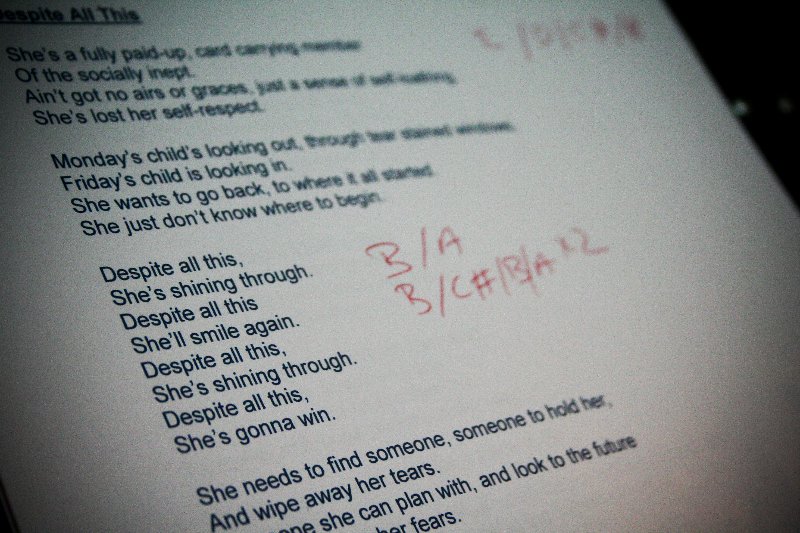 Despite All This
She's a fully paid-up, card carrying member
Of the socially inept.
Ain't got no airs or graces, just a sense of self-loathing,
She's lost her self-respect.
Monday's child's looking out, through tear stained windows,
Friday's child is looking in.
She wants to go back, to where it all started.
She just don't know where to begin.
Despite all this,
She's shining through.
Despite all this
She'll smile again.
Despite all this,
She's shining through.
Despite all this,
She's gonna win.
B/A
B/C#/B/A x2
She needs to find someone, someone to hold her,
And wipe away her tears.
she can plan with, and look to the future
her fears.